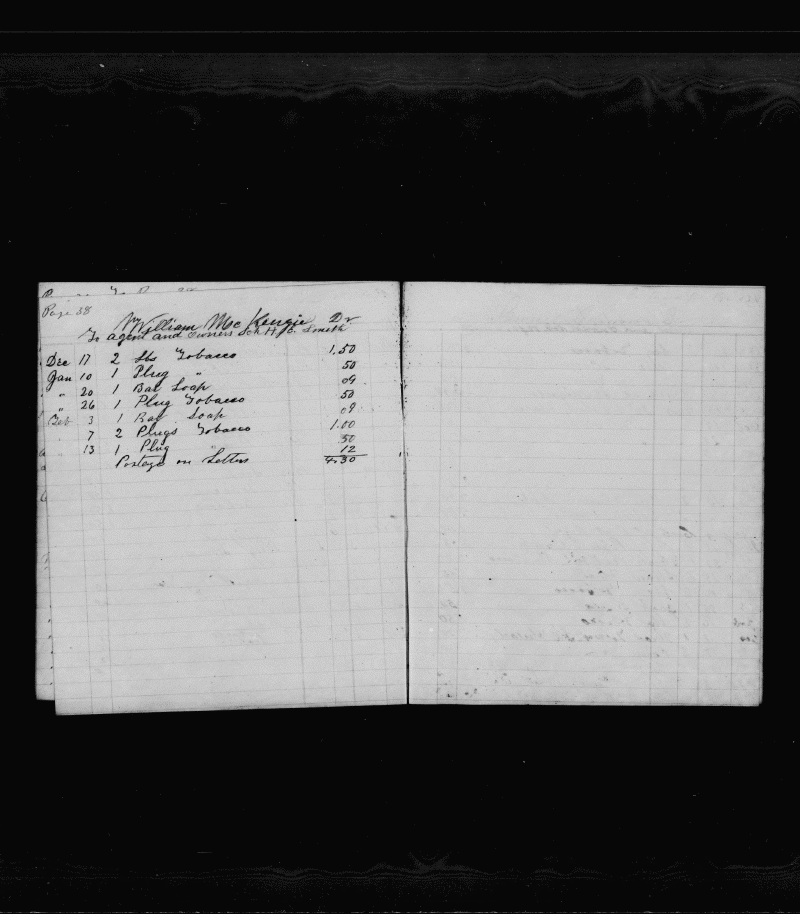 Page 38
Mr William McKenzie Dr
To agent and Owners Sch H. C. Smith
Dec 17 2 lbs Tobacco 1.50
Jan 10 1 Plug " 50
" 20 1 Bar Soap 09
" 26 1 Plug Tobacco 50
Feb 3 1 Bar Soap 09
7 2 Plugs Tobacco 1.00
13 1 Plug " 50
Postage on Letters 12
4.30